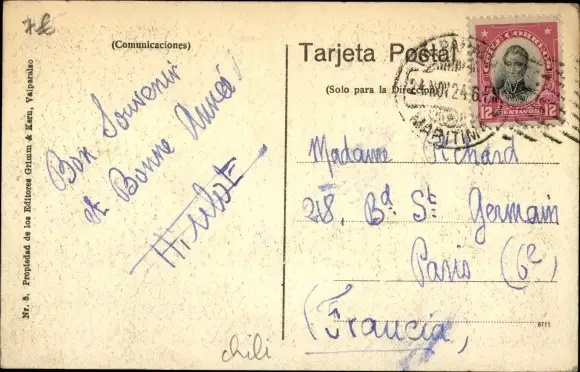 (Comunicaciones)
Tarjeta Postal
(Solo para la Direccion)
CHILE CORREOS
12 CENTAVOS 12
MARITIM
Bon Souvenir
et Bonne Année
Madame Richard
218, Bd St Germain
Paris (6e)
(Francia,
Nr. 5. Propiedad de los Editores Grimm & Kern, Valparaiso
8711
chili